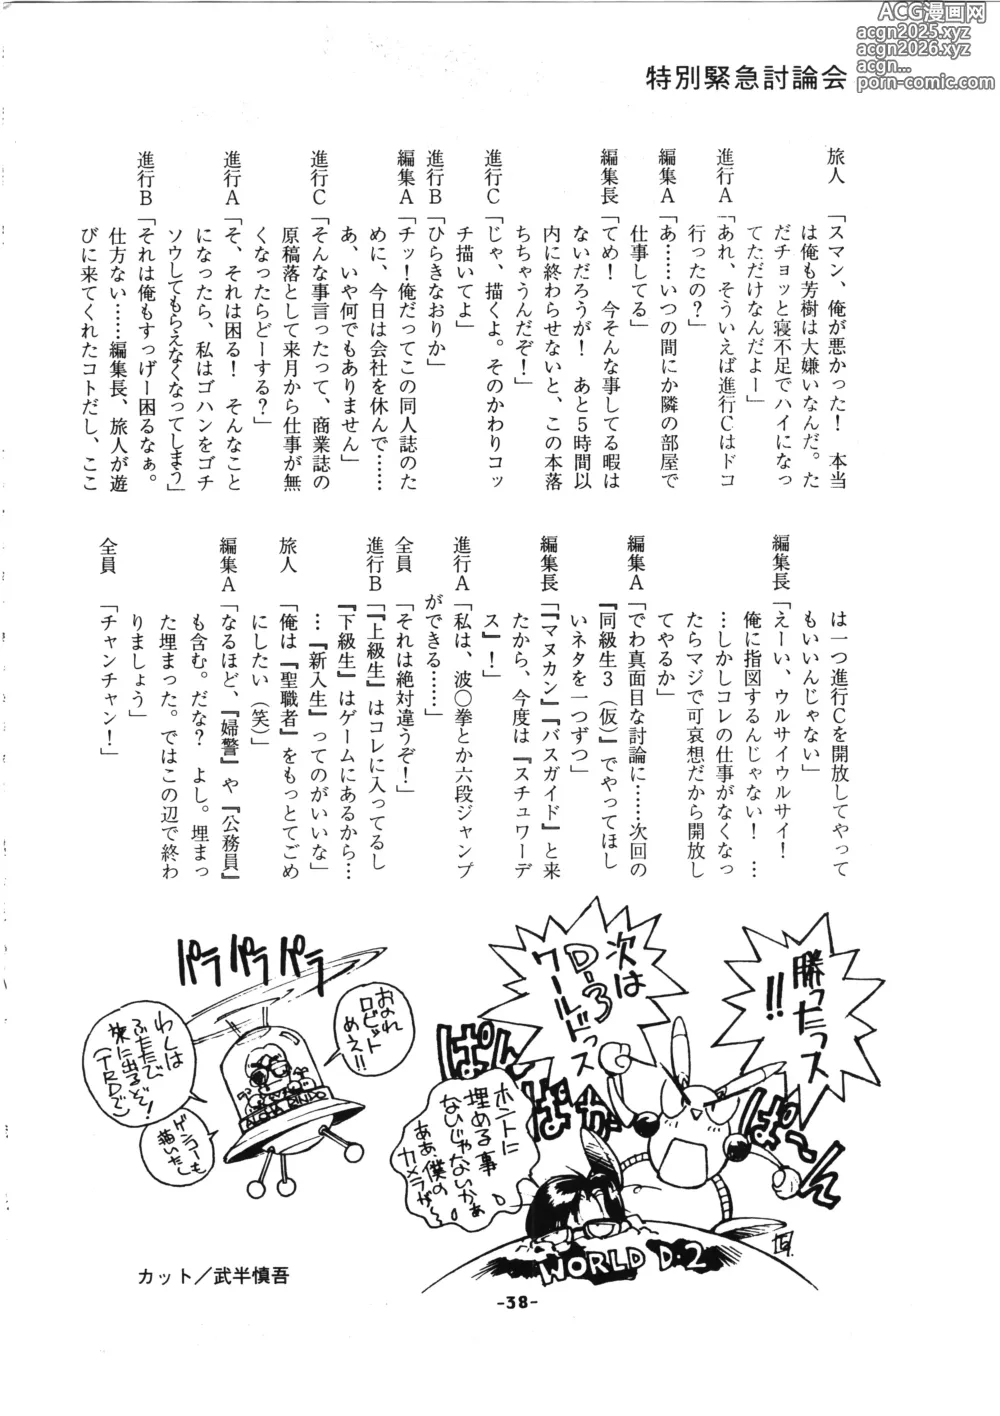 ACG漫画网
acgn2025.xyz
acgn2026.xyz
acgn...
porn-comic.com
特別緊急討論会
旅人　「スマン、俺が悪かった！　本当
は俺も芳樹は大嫌いなんだ。た
だチョッと寝不足でハイになっ
てただけなんだよー」
進行A「あれ、そういえば進行Cはドコ
行ったの？」
編集A「あ……いつの間にか隣の部屋で
仕事してる」
編集長「てめ！　今そんな事してる暇は
ないだろうが！　あと５時間以
内に終わらせないと、この本落
ちちゃうんだぞ！」
進行C「じゃ、描くよ。そのかわりコッ
チ描いてよ」
進行B「ひらきなおりか」
編集A「チッ！俺だってこの同人誌のた
めに、今日は会社を休んで……
あ、いや何でもありません」
進行C「そんな事言ったって、商業誌の
原稿落として来月から仕事が無
くなったらどーする？」
進行A「そ、それは困る！　そんなこと
になったら、私はゴハンをゴチ
ソウしてもらえなくなってしまう」
進行B「それは俺もすっげー困るなぁ。
仕方ない……編集長、旅人が遊
びに来てくれたコトだし、ここ
は一つ進行Cを開放してやって
もいいんじゃない」
編集長「えーい、ウルサイウルサイ！
俺に指図するんじゃない！　…
…しかしコレの仕事がなくなっ
たらマジで可哀想だから開放し
てやるか」
編集A「でわ真面目な討論に……次回の
『同級生３（仮）』でやってほし
いネタを一つずつ」
編集長「『マヌカン』『バスガイド』と来
たから、今度は『スチュワーデ
ス』！」
進行A「私は、波○拳とか六段ジャンプ
ができる……」
全員　「それは絶対違うぞ！」
進行B「『上級生』はコレに入ってるし
『下級生』はゲームにあるから…
…『新入生』ってのがいいな」
旅人　「俺は『聖職者』をもっとてごめ
にしたい（笑）」
編集A「なるほど、『婦警』や『公務員』
も含む。だな？　よし。埋まっ
た埋まった。ではこの辺で終わ
りましょう」
全員　「チャンチャン！」
勝ったっス!!
次は
D-3
ワールドっス
ぱん
ぱか
ぱーん
ホントに
埋める事
ないじゃないかぁ
ああ、僕の
カメラが〜
WORLD D・2
パラパラパラ
おのれ
ロビット
めぇ!!
わしは
ふたたび
旅に出るぞ！
(TRDで)
ゲンコーも
描いたし
ALOHA BINDO
カット／武半慎吾
-38-